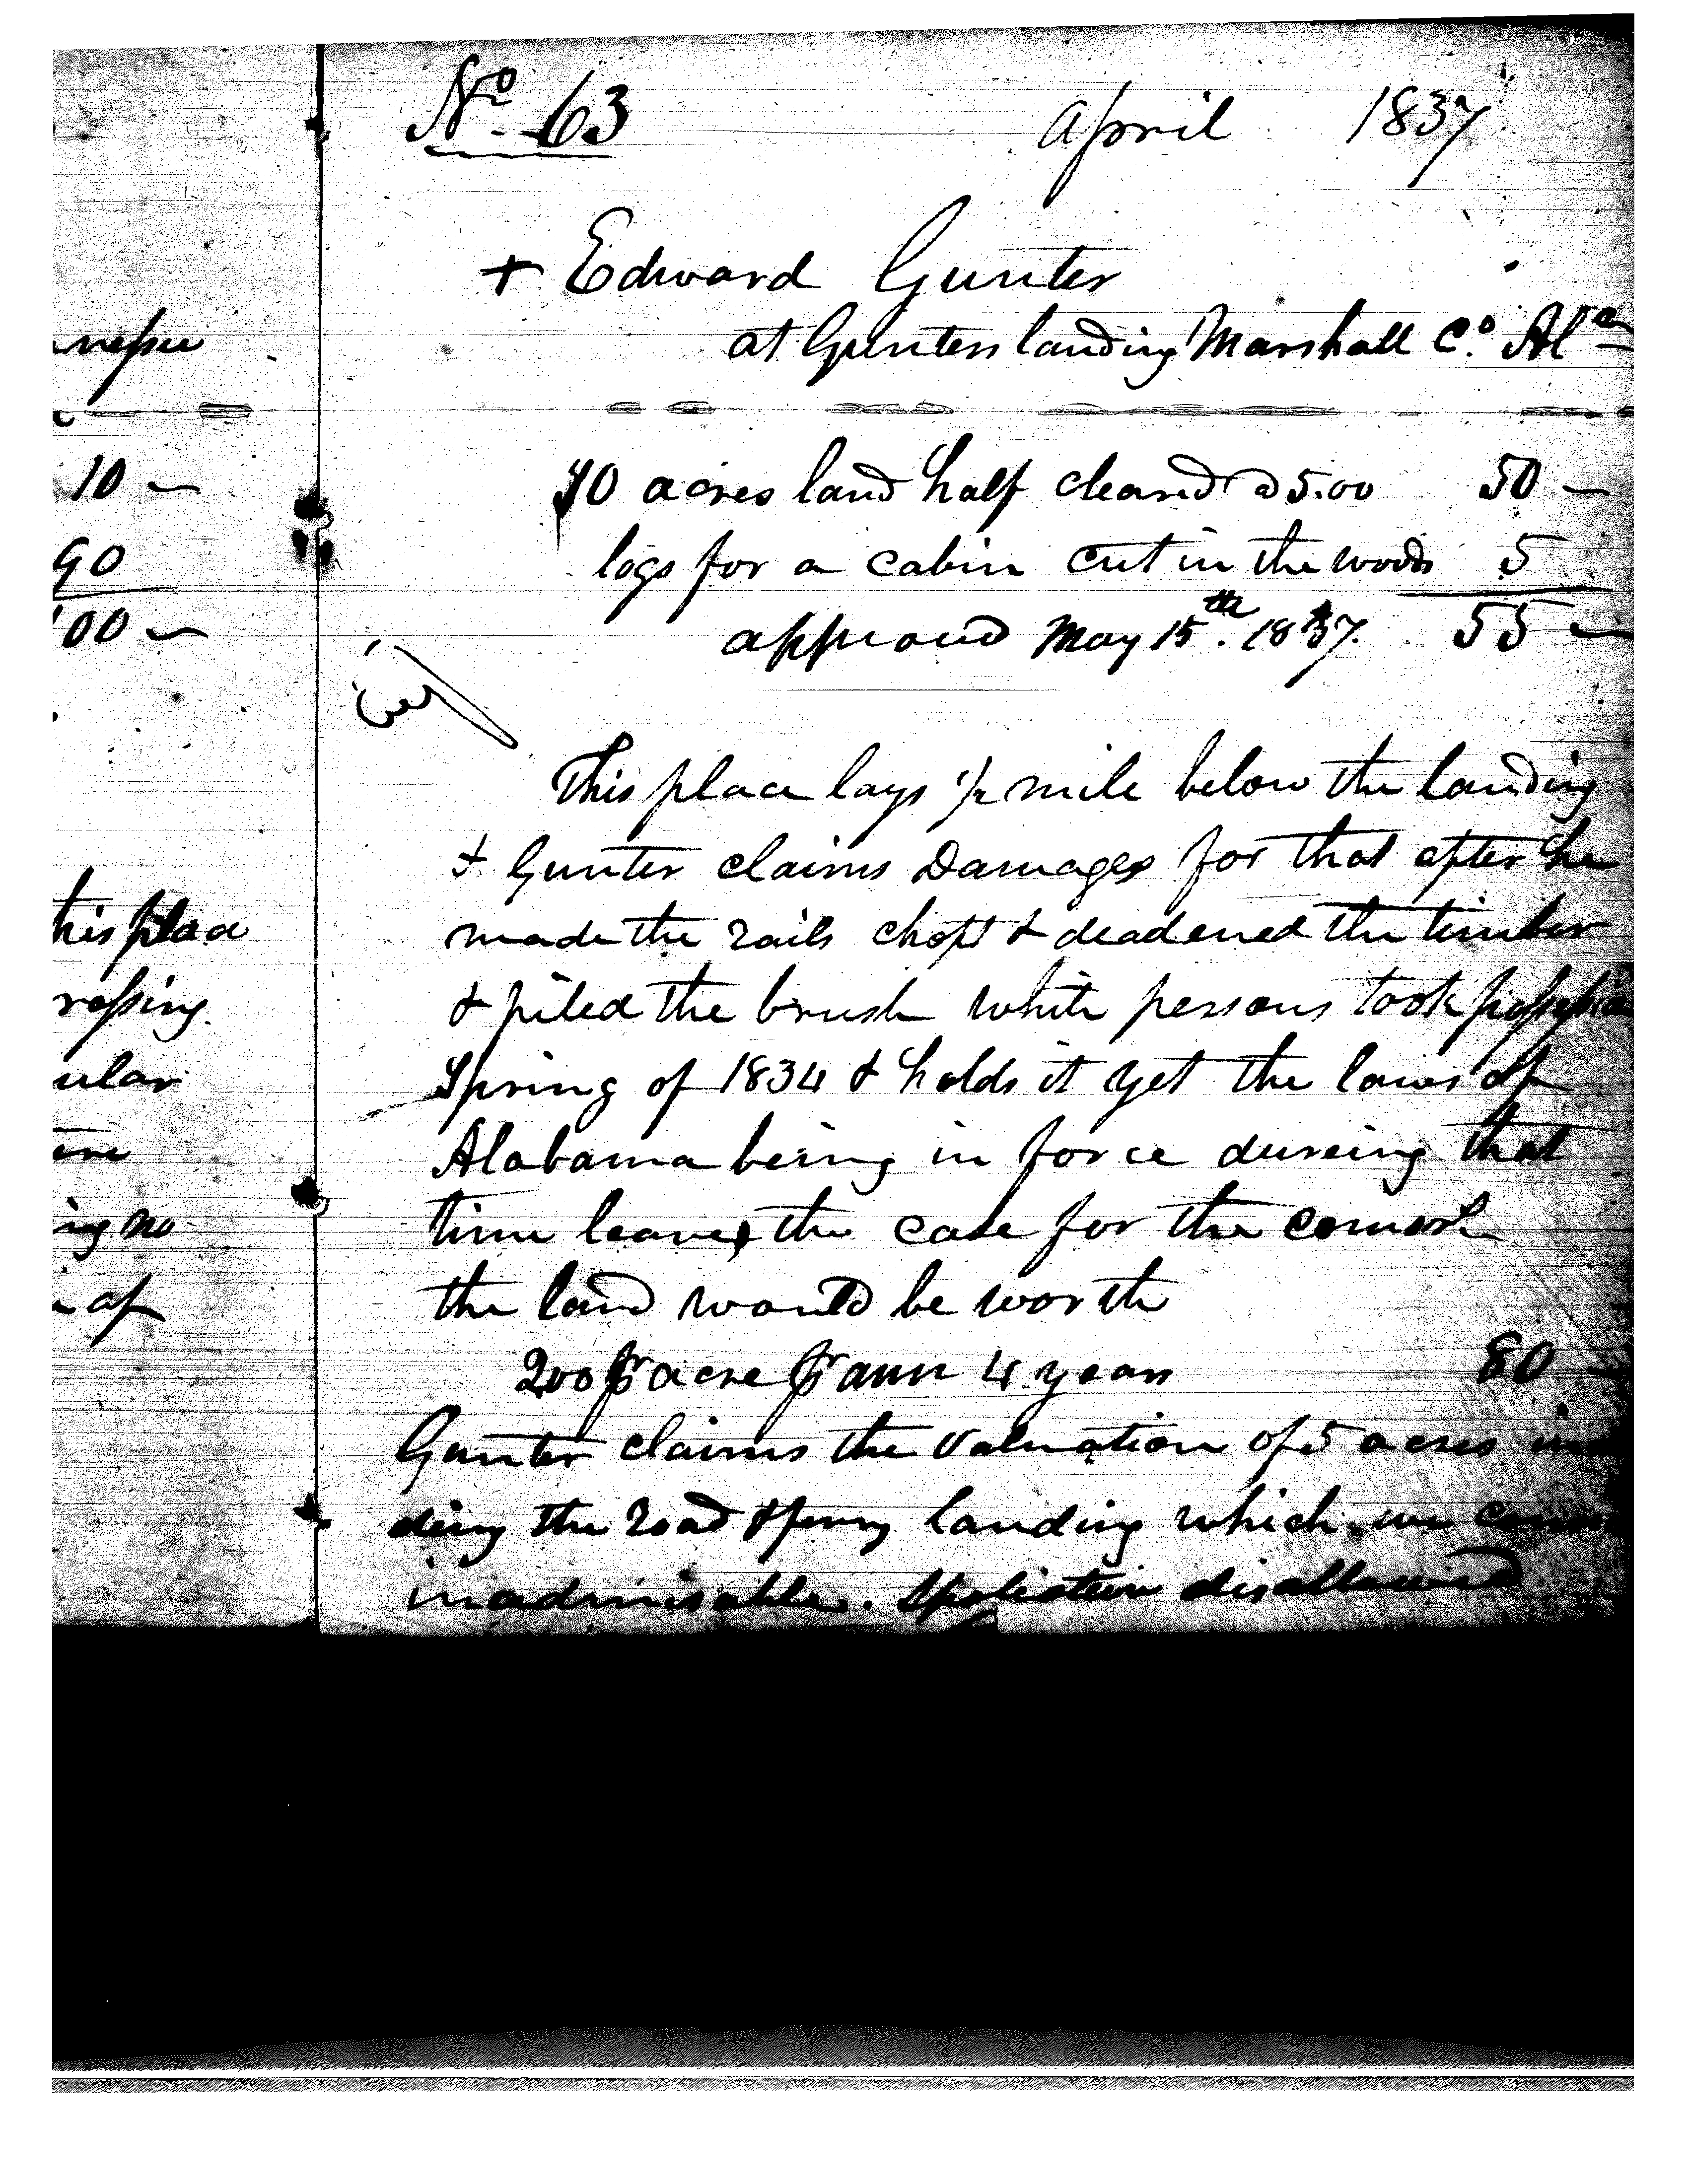 No. 63 April 1837
+ Edward Gunter
at Gunters landing Marshall Co. Ala
10 acres land half cleared @ 5.00 50 —
logs for a cabin cut in the woods 5
approved May 15th. 1837. 55 —
This place lays 1/2 mile below the landing
& Gunter claims Damages for that after he
made the rails chopt & deadened the timber
& piled the brush white persons took possession
Spring of 1834 & holds it yet the laws of
Alabama being in force dureing that
time leaves the case for the
the land would be worth
200 pr acre pr ann 4 years 80
Gunter claims the valuation of 5 acres
ding the road & ferry landing which we
inadmisable. Spoliation disallowed
10 —
90
100 —
his place
ular
ing no
of